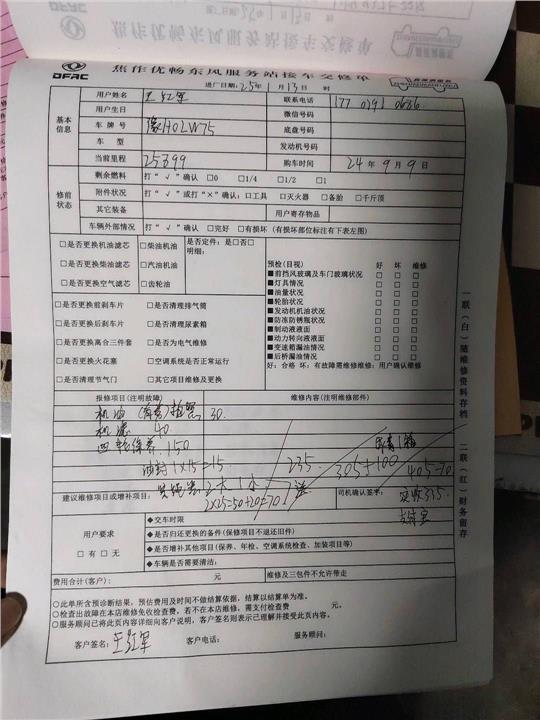 DFAC 焦作优畅东风服务站接车交修单
进厂日期:25年1月13日 时
基本信息
用户姓名 王红军 联系电话
用户生日 微信号码
车牌号 豫H02W75 底盘号码
车型 发动机号码
当前里程 25899 购车时间 24年9月9日
修前状态
剩余燃料 打“√”确认 □0 □1/4 □1/2 □1
附件状况 打“√”或打“×”确认:□工具 □灭火器 □备胎 □千斤顶
其它装备 用户寄存物品
车辆外部情况 打“√”确认 □完好 □有损坏(有损坏部位标注有下表左图)
□是否更换机油滤芯 □柴油机油 是否定件:是□否□
明细:
□是否更换柴油滤芯 □汽油机油
□是否更换空气滤芯 □齿轮油
□是否更换前刹车片 □是否清理排气筒
□是否更换后刹车片 □是否清理尿素箱
□是否更换离合三件套 □是否为电气维修
□是否更换火花塞 □空调系统是否正常运行
□是否清理节气门 □其它项目维修及更换
预检(目视) 好 坏 维修
■前挡风玻璃及车门玻璃状况 □ □ □
■灯具情况 □ □ □
■油量状况 □ □ □
■轮胎状况 □ □ □
■发动机机油状况 □ □ □
■防冻防锈瓶状况 □ □ □
■制动液液面 □ □ □
■动力转向液液面 □ □ □
■变速箱漏油情况 □ □ □
■后桥漏油情况 □ □ □
好:合格 坏:有故障需维修维修:用户确认维修
报修项目(注明故障) 维修内容(注明维修部件)
机油 30
机滤 40
四轮保养 150
油封 1×15=15 235 305+100 405-70
2大1小
2×25-50+20=70 送
建议维修项目或增补项目: 司机确认签字: 实收375
支付宝
用户要求
□有 □无
◆交车时限
◆是否归还更换的备件(保修项目不退还旧件)
◆是否增补其他项目(保养、年检、空调系统检查、加装项目等)
◆车辆是否需要清洁:
费用合计(客户): 元 维修及三包件不允许带走
○此单所含预诊断结果,预估费用及时间不做结算依据,结算以结算单为准。
○检查出故障在本店维修免收检查费,若不在本店维修,需支付检查费 元。
○服务顾问已将此页内容详细向客户说明,客户签名则表示已理解并接受此页内容。
客户签名: 王红军 客户电话: 服务顾问:
一联(白)随维修资料存档 二联(红)财务留存